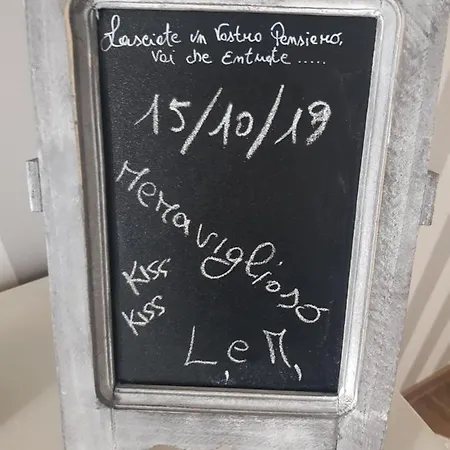 Lasciate un Vostro Pensiero,
Voi che Entrate .....
15/10/19
Meraviglioso
Kiss
Kiss
L, e M,